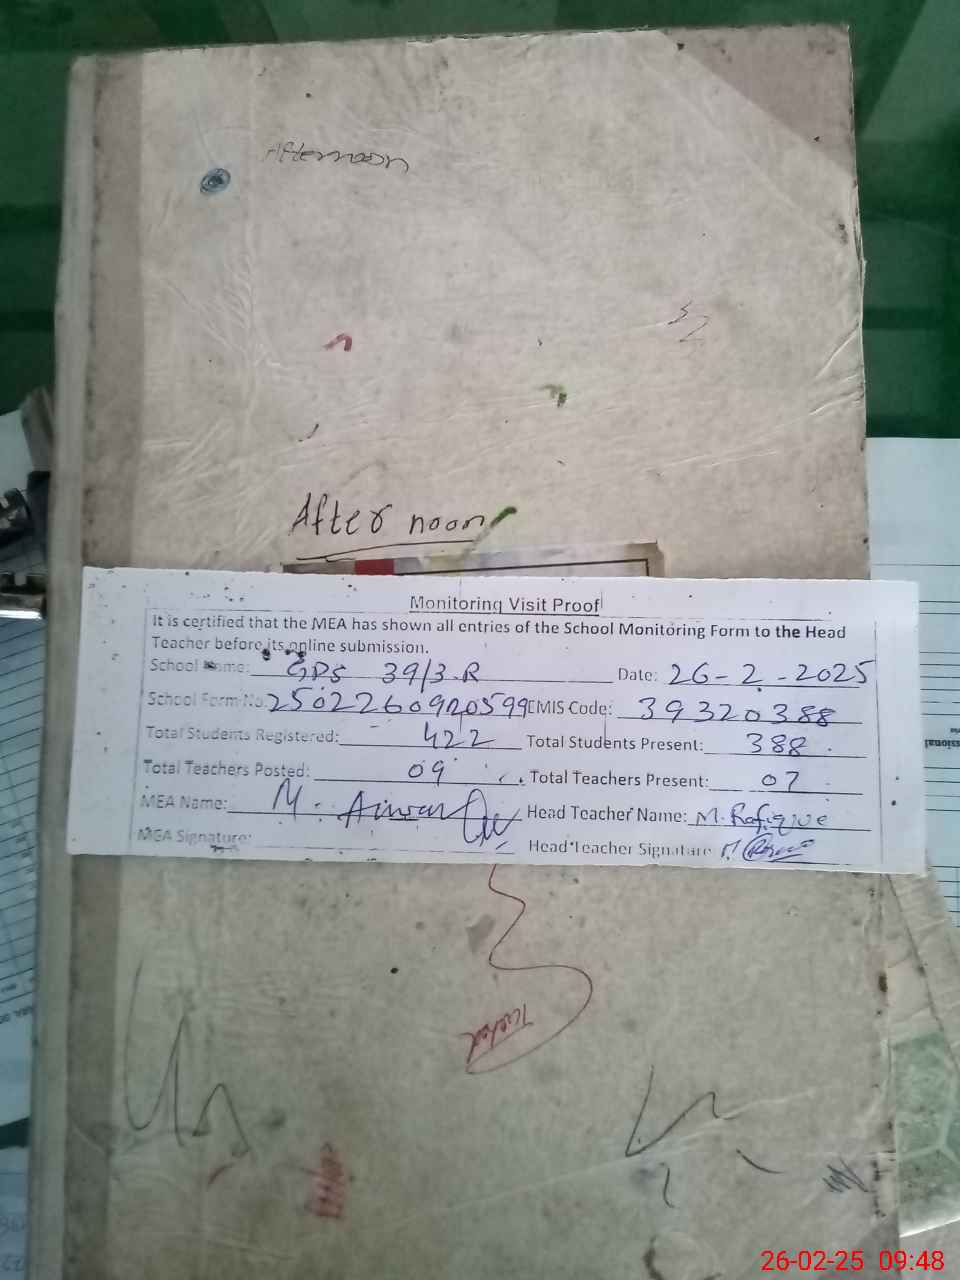 Afternoon
After noon
Monitoring Visit Proof
It is certified that the MEA has shown all entries of the School Monitoring Form to the Head
Teacher before its online submission.
School Name: GPS 39/3-R Date: 26-2-2025
School Form No. 250226092059 9 EMIS Code: 39320388
Total Students Registered: 422 Total Students Present: 388
Total Teachers Posted: 09 Total Teachers Present: 07
MEA Name: M. Head Teacher Name: M. Rafique
MEA Signature: Head Teacher Signature
26-02-25 09:48